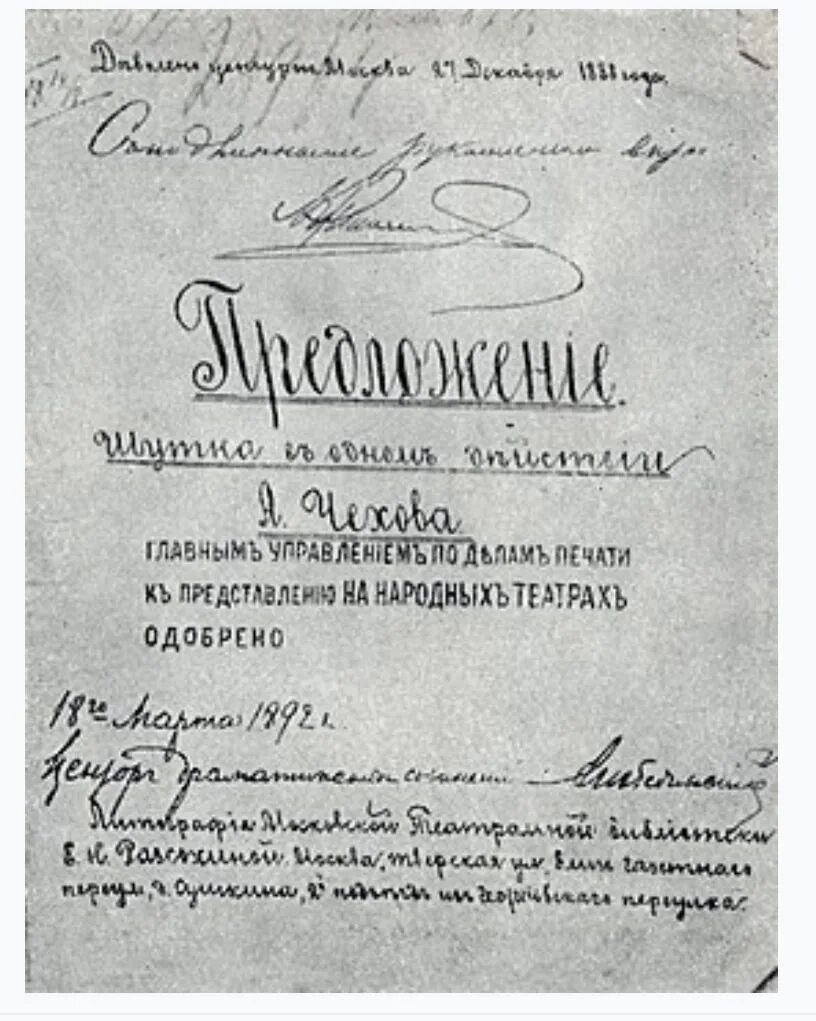 Дозволено цензурою Москва 27 Декабря 1888 года.
Съ
Предложеніе.
Шутка въ одномъ дѣйствіи
А. Чехова
ГЛАВНЫМЪ УПРАВЛЕНІЕМЪ ПО ДѢЛАМЪ ПЕЧАТИ
КЪ ПРЕДСТАВЛЕНІЮ НА НАРОДНЫХЪ ТЕАТРАХЪ
ОДОБРЕНО
18го Марта 1892 г.
Цензоръ драматическихъ сочиненій
Литографія Московской Театральной библіотеки
Е. Н. Разсохиной. Москва, Тверская ул., близь газетнаго
переул., д. Сушкина, 2й подъѣздъ Георгіевскаго переулка.